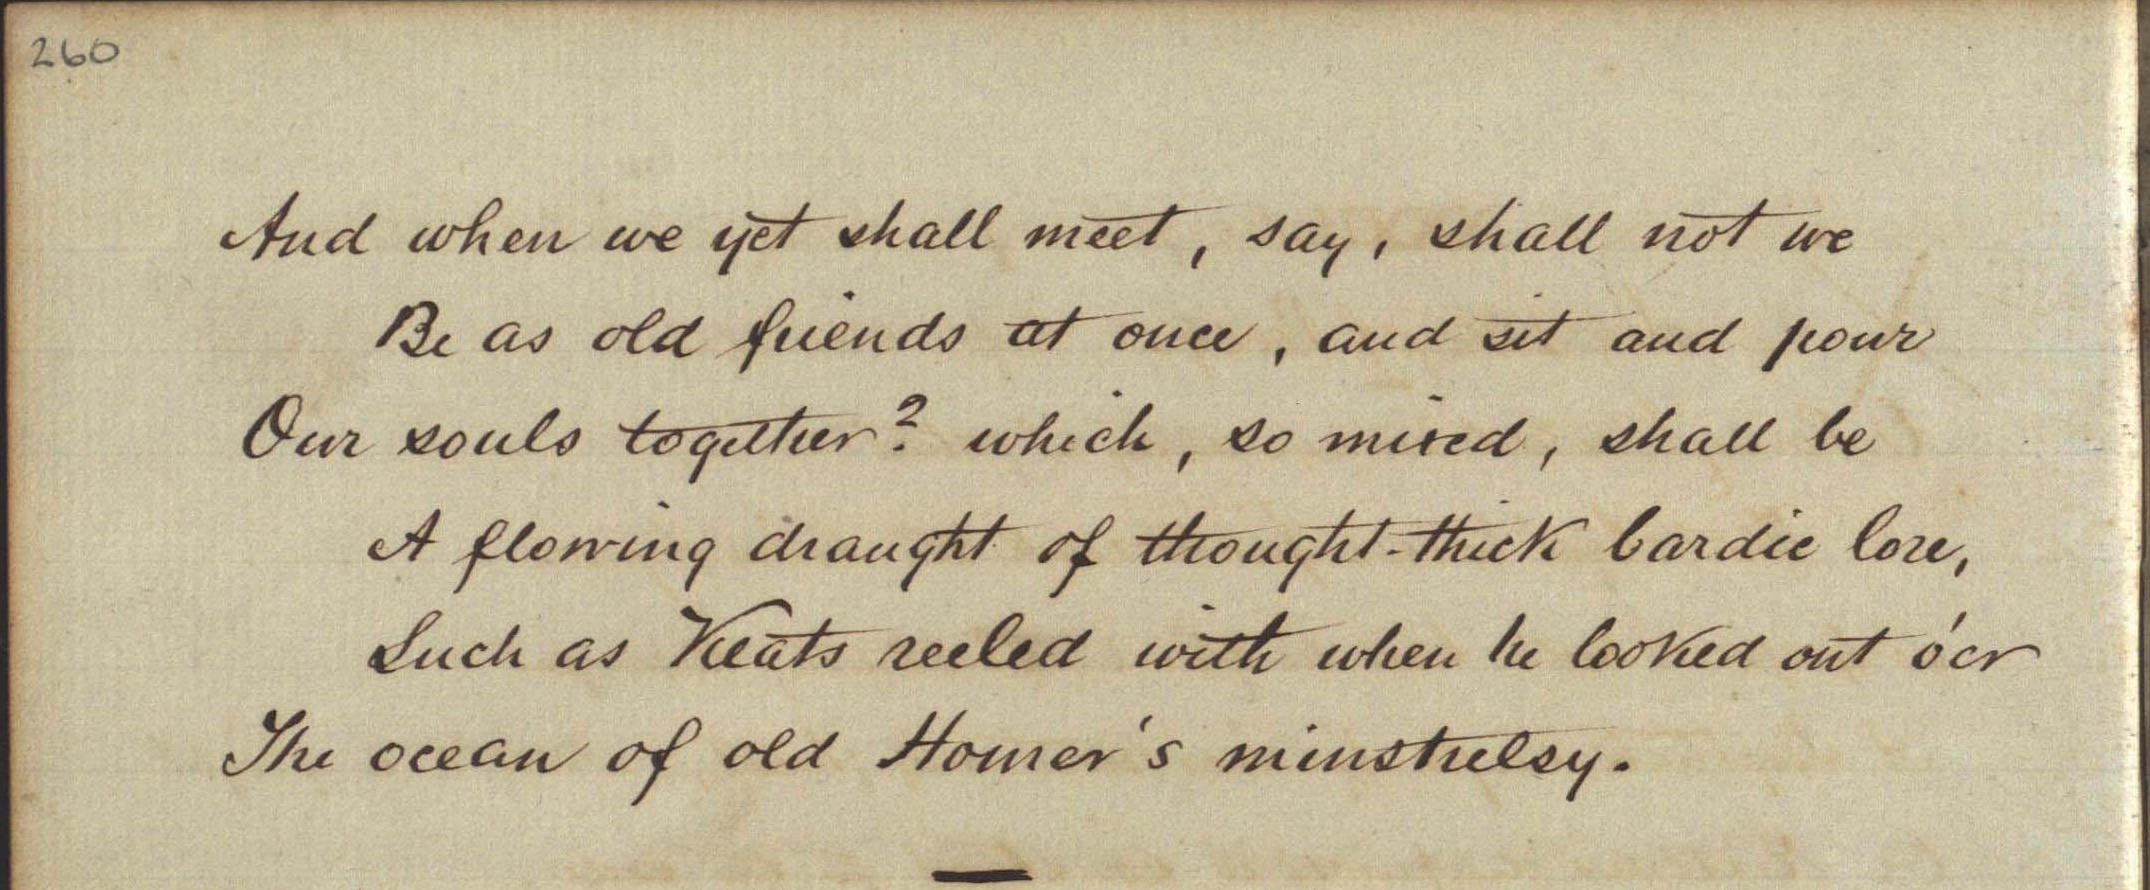 260
And when we yet shall meet, say, shall not we
Be as old friends at once, and sit and pour
Our souls together? which, so mixed, shall be
A flowing draught of thought-thick bardic lore,
Such as Keats reeled with when he looked out o'er
The ocean of old Homer's minstrelsy.